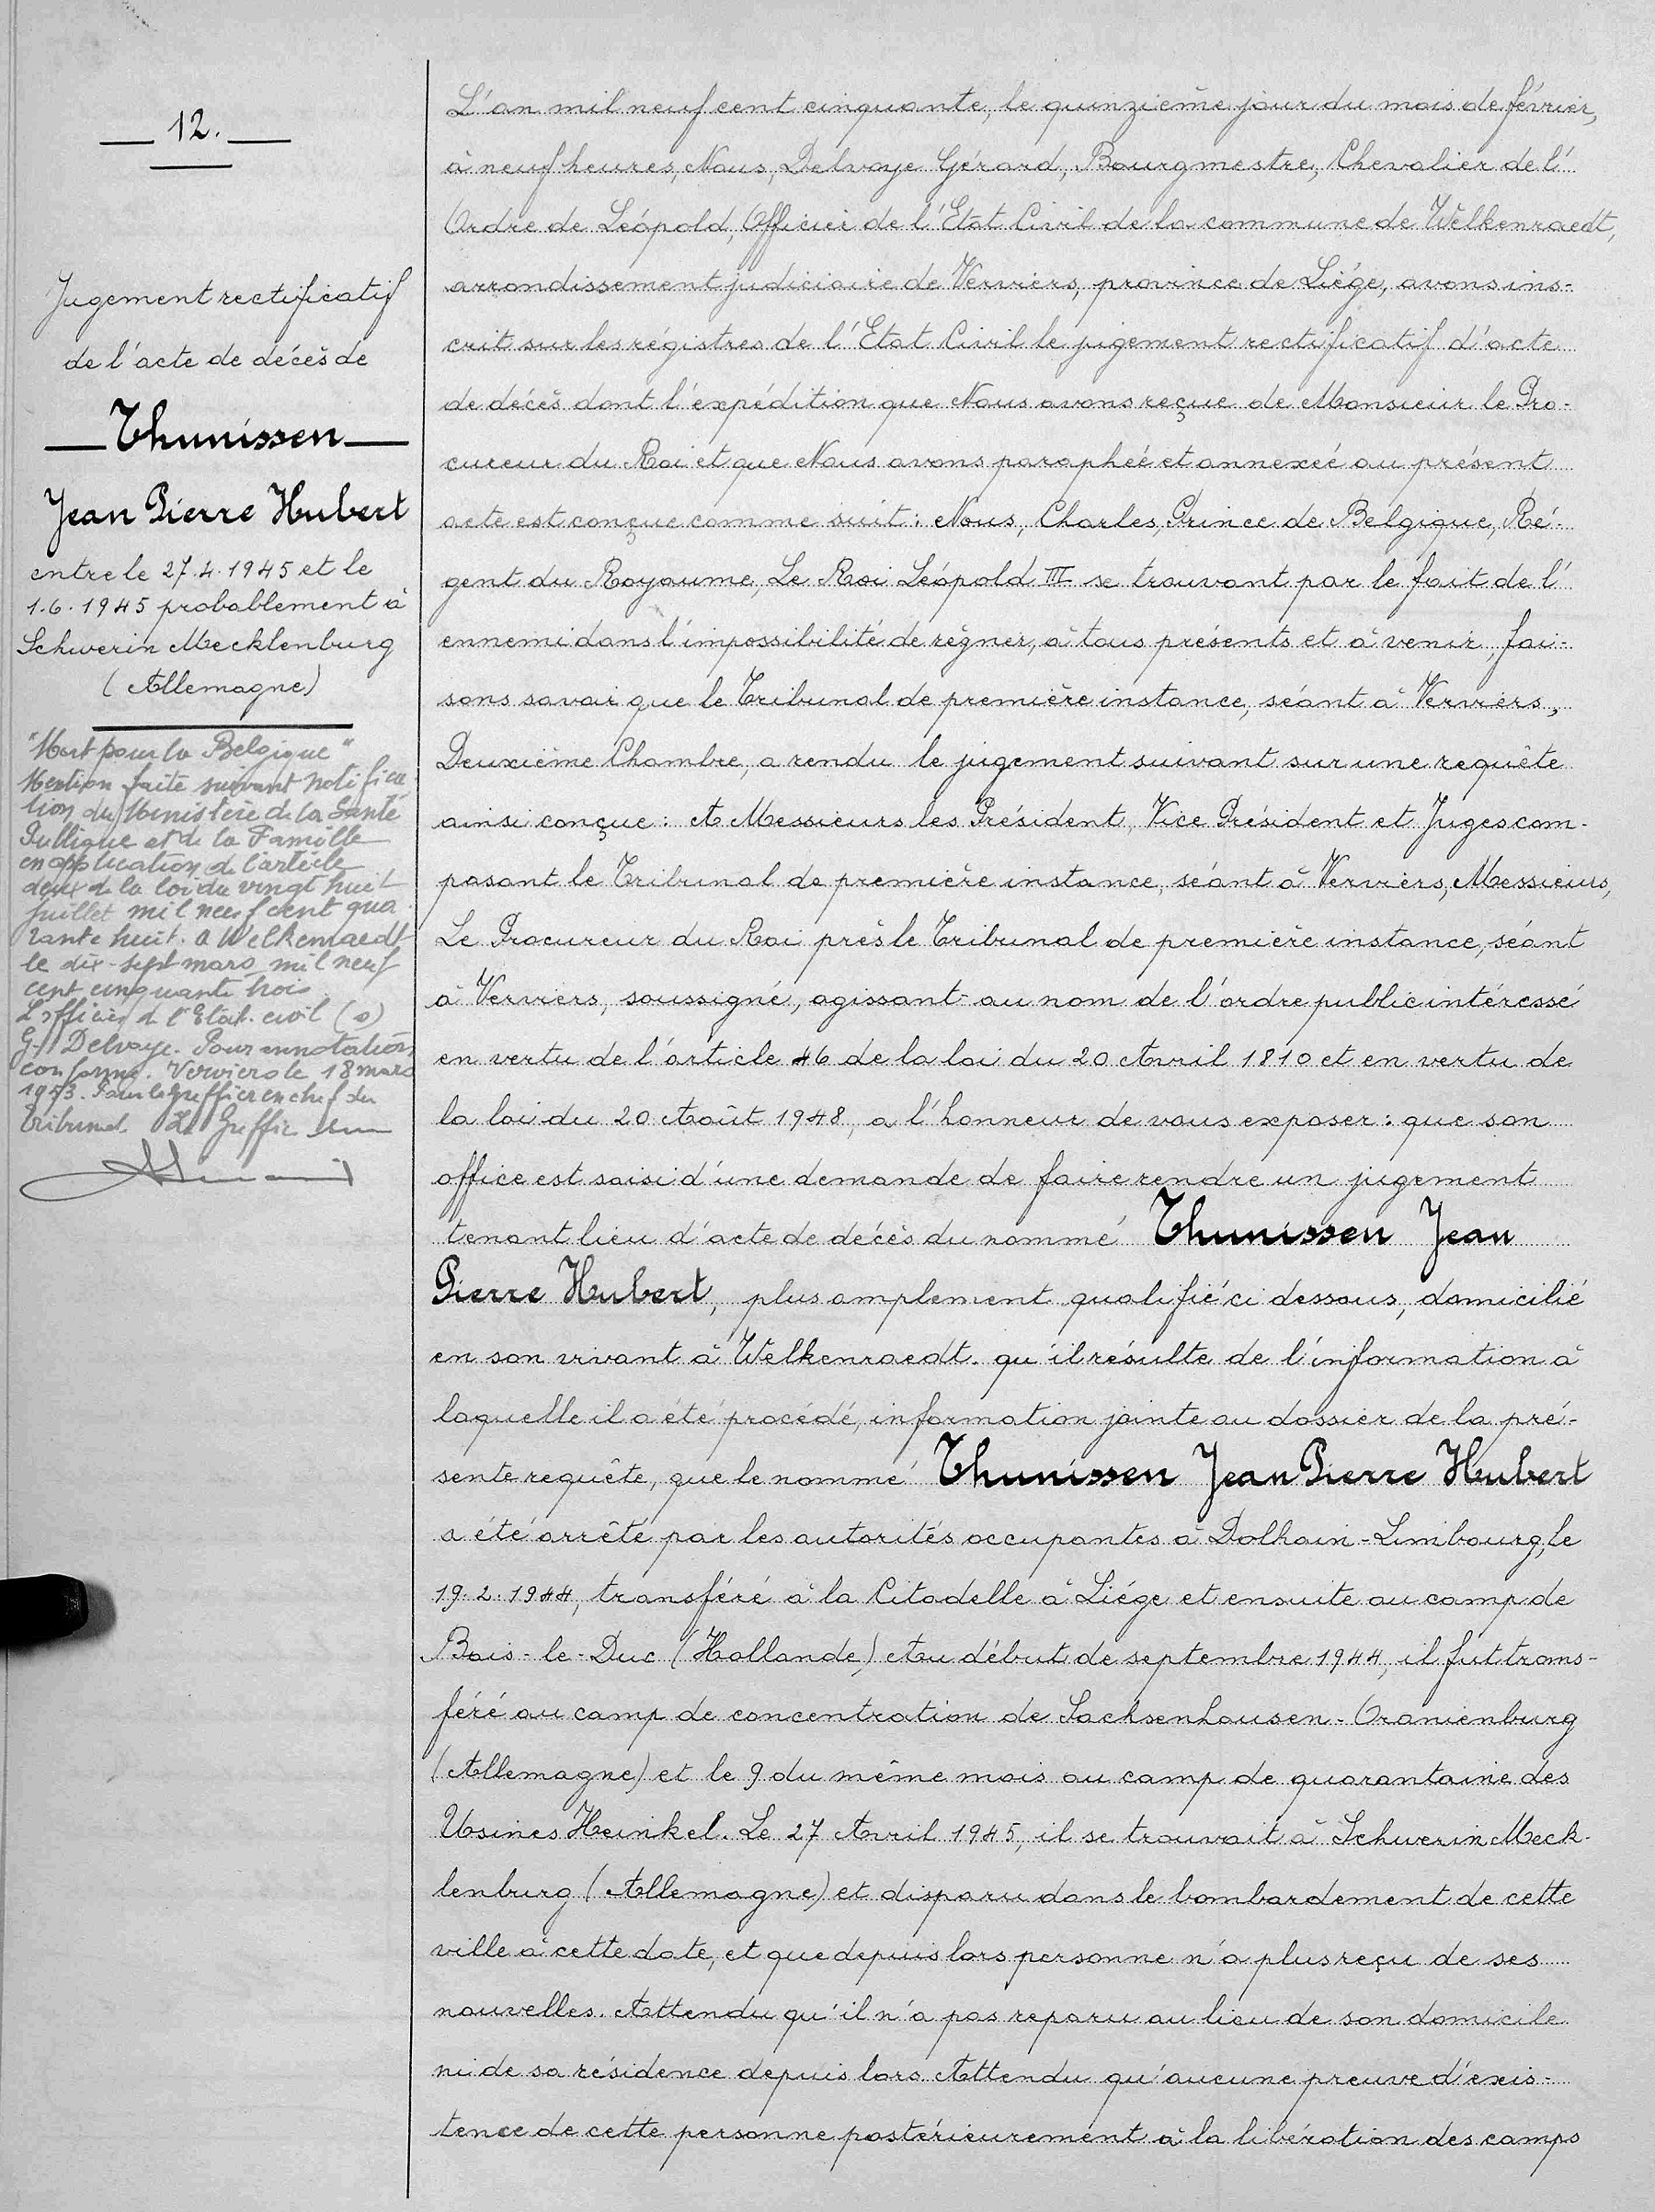 12.
Jugement rectificatif
de l'acte de décès de
Thunissen
Jean Pierre Hubert
entre le 27.4.1945 et le
1.6.1945 probablement à
Schwerin Mecklenburg
(Allemagne)
"Mort pour la Belgique"
Mention faite suivant notifica
tion du Ministère de la Santé
Publique et de la Famille
en application de l'article
deux de la loi du vingt huit
Juillet mil neuf cent qua
rante huit. a Welkenraedt
le dix-sept mars mil neuf
cent cinquante trois.
L'officier de l'Etat-civil (s)
G. Delvaye. Pour annotation
conforme. Verviers le 18 mars
1953. Pour le greffier en chef du
Tribunal. Le Greffier
L'an mil neuf cent cinquante, le quinzième jour du mois de février,
à neuf heures, Nous, Delvaye Gérard, Bourgmestre, Chevalier de l'
Ordre de Léopold, Officier de l'Etat Civil de la commune de Welkenraedt,
arrondissement judiciaire de Verviers, province de Liége, avons ins-
crit sur les régistres de l'Etat Civil le jugement rectificatif d'acte
de décès dont l'expédition que Nous avons reçue de Monsieur le Pro-
cureur du Roi et que Nous avons paraphée et annexée au présent
acte est conçue comme suit: Nous, Charles, Prince de Belgique, Ré-
gent du Royaume, Le Roi Léopold III se trouvant par le fait de l'
ennemi dans l'impossibilité de règner, à tous présents et à venir, fai-
sons savoir que le Tribunal de première instance, séant à Verviers,
Deuxième Chambre, a rendu le jugement suivant sur une requête
ainsi conçue: A Messieurs les Président, Vice Président et Juges com-
posant le Tribunal de première instance, séant à Verviers, Messieurs,
Le Procureur du Roi près le Tribunal de première instance, séant
à Verviers, soussigné, agissant au nom de l'ordre public intéressé
en vertu de l'article 46 de la loi du 20 Avril 1810 et en vertu de
la loi du 20 Août 1948, a l'honneur de vous exposer: que son
office est saisi d'une demande de faire rendre un jugement
tenant lieu d'acte de décès du nommé Thunissen Jean
Pierre Hubert, plus amplement qualifié ci dessous, domicilié
en son vivant à Welkenraedt. qu'il résulte de l'information à
laquelle il a été procédé, information jointe au dossier de la pré-
sente requête, que le nommé Thunissen Jean Pierre Hubert
a été arrêté par les autorités occupantes à Dolhain-Limbourg, le
19.2.1944, transféré à la Citadelle à Liége et ensuite au camp de
Bois-le-Duc (Hollande) Au début de septembre 1944, il fut trans-
féré au camp de concentration de Sachsenhausen-Oranienburg
(Allemagne) et le 9 du même mois au camp de quarantaine des
Usines Heinkel. Le 27 Avril 1945, il se trouvait à Schwerin Meck-
lenburg (Allemagne) et disparu dans le bombardement de cette
ville à cette date, et que depuis lors personne n'a plus reçu de ses
nouvelles. Attendu qu'il n'a pas reparu au lieu de son domicile
ni de sa résidence depuis lors. Attendu qu'aucune preuve d'exis-
tence de cette personne postérieurement à la libération des camps